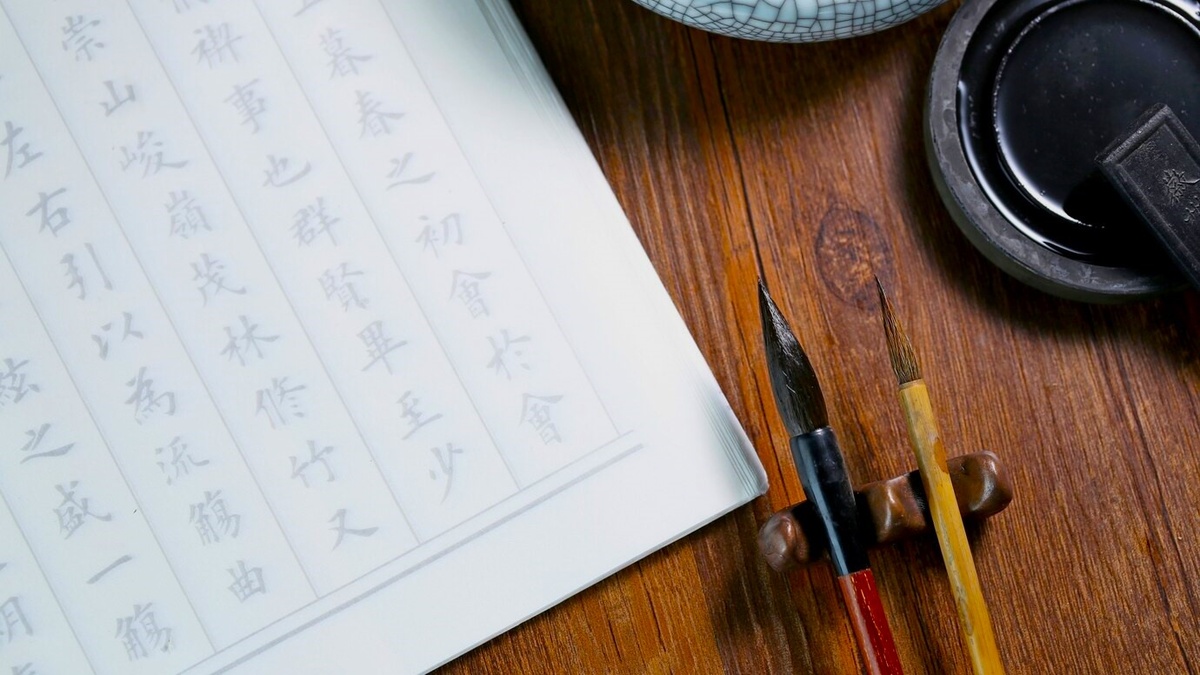 暮春之初會於會
禊事也群賢畢至少
崇山峻嶺茂林修竹又
左右引以為流觴曲
絃之盛一觴